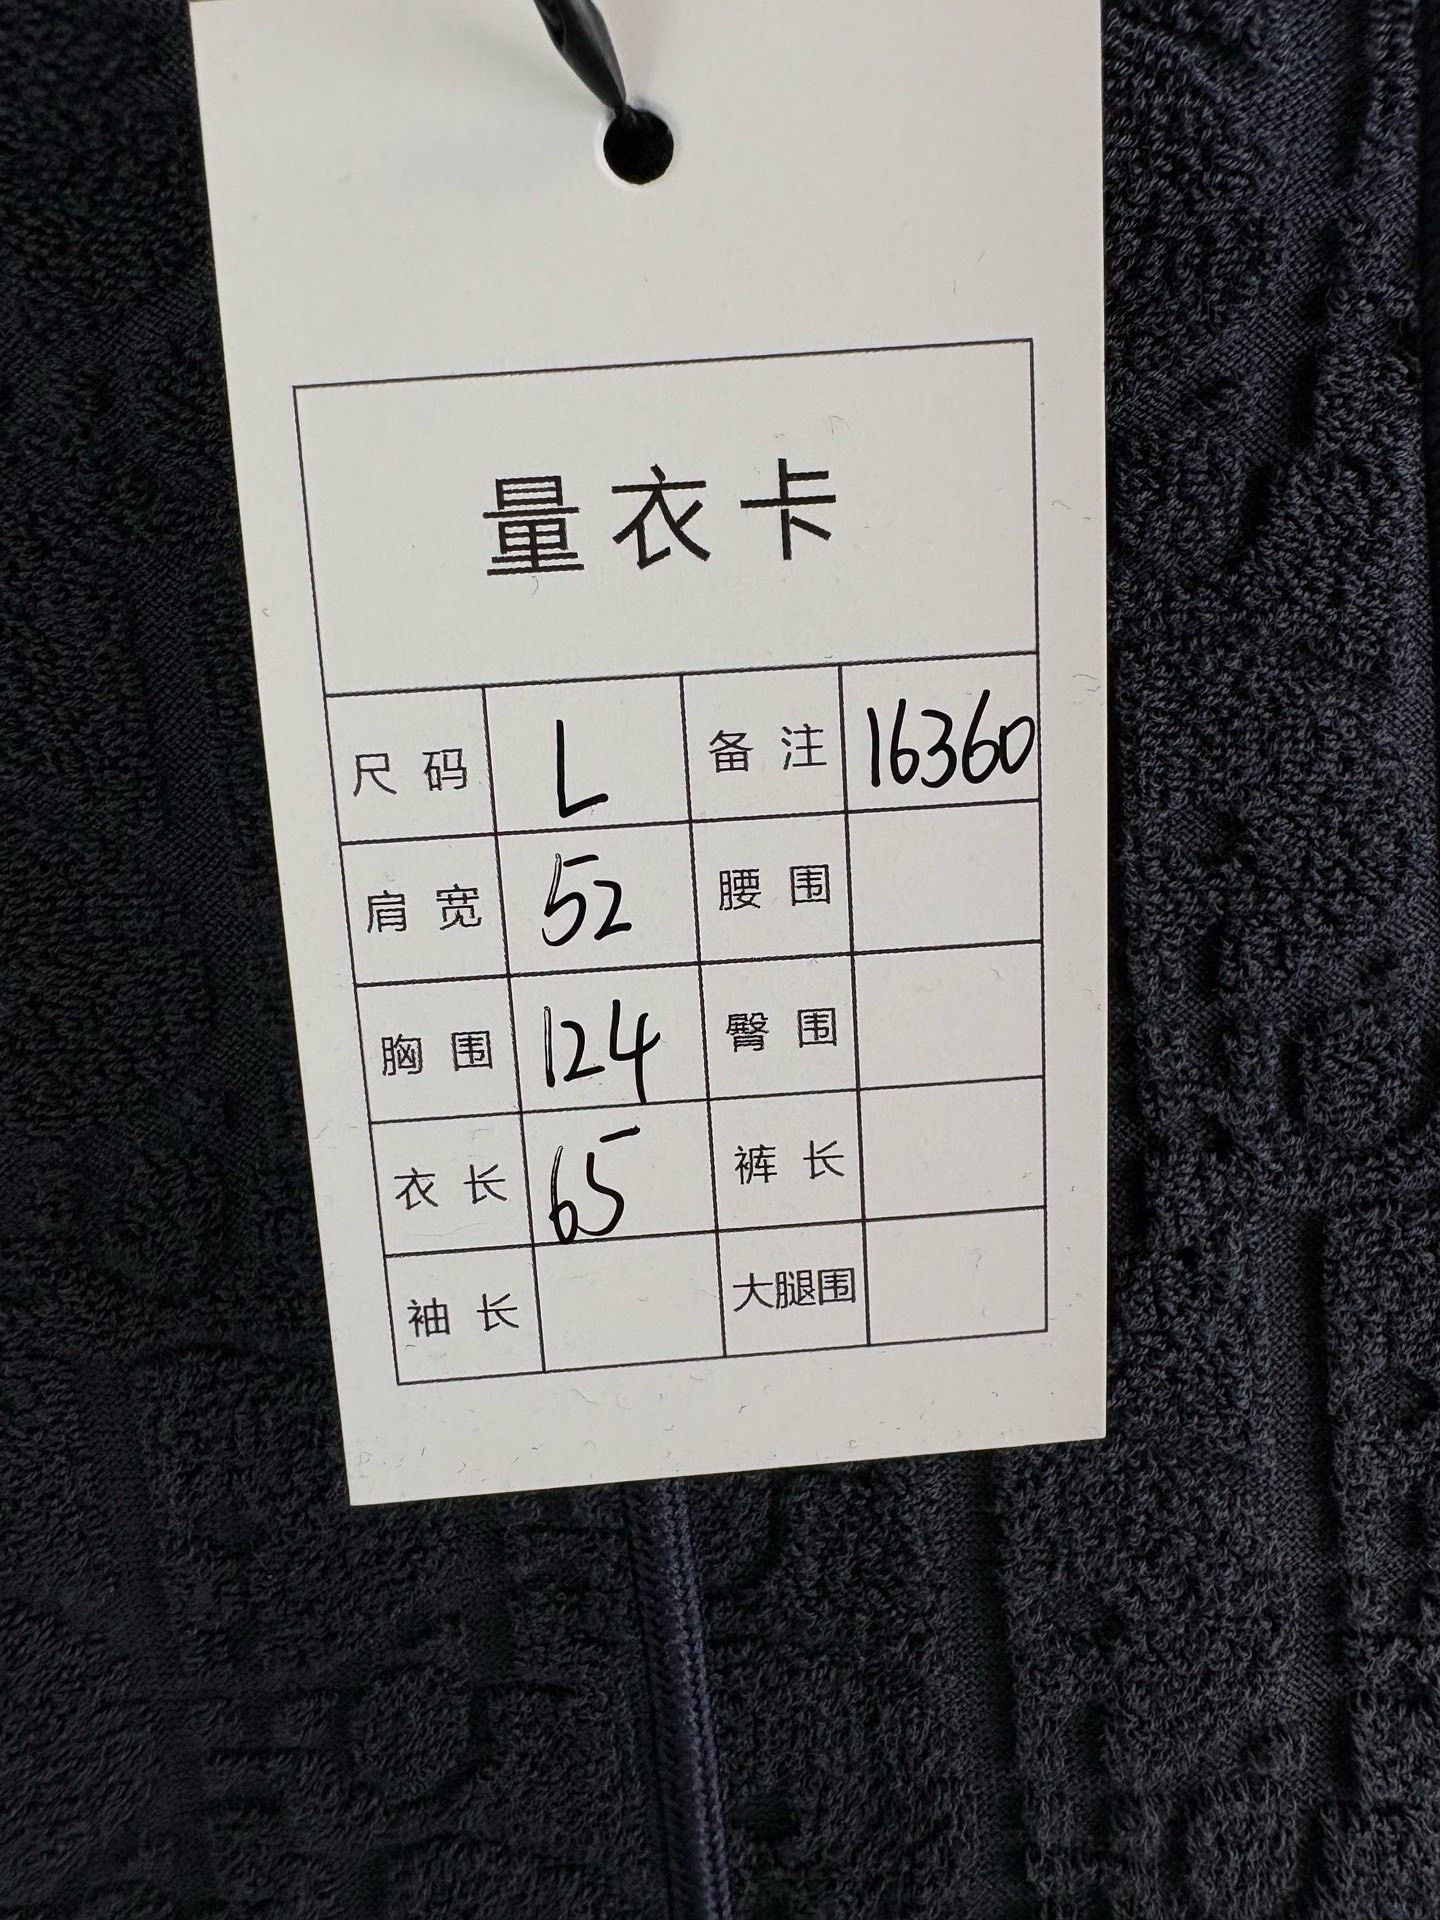 量衣卡
尺码 L 备注 16360
肩宽 52 腰围
胸围 124 臀围
衣长 65 裤长
袖长 大腿围